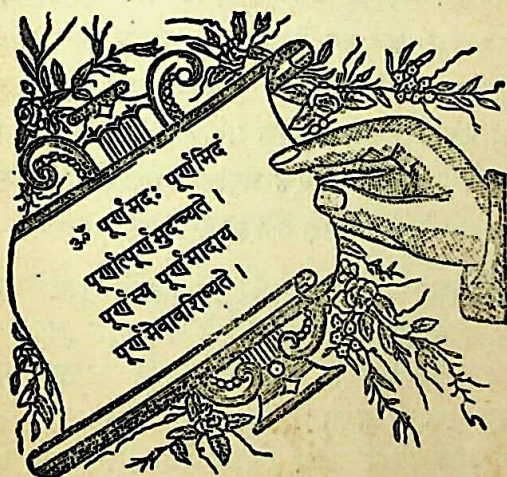 ॐ पूर्णमदः पूर्णमिदं
पूर्णात्पूर्णमुदच्यते ।
पूर्णस्य पूर्णमादाय
पूर्णमेवावशिष्यते ।